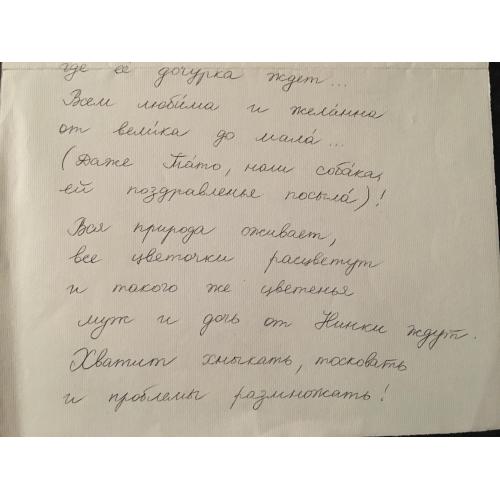 где ее дочурка ждет...
Всем люби́ма и жела́нна
от вели́ка до мала́...
(Даже Та́то, наш соба́ка,
ей поздравленье посыла́)!
Вся природа оживает,
все цветочки расцветут
и такого же цветенья
муж и дочь от Нинки ждут.
Хватит хныкать, тосковать
и проблемы размножать!